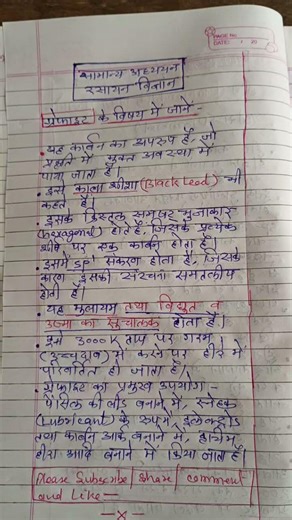 सामान्य अध्ययन
रसायन विज्ञान
ग्रेफाइट के विषय में जानें -
• यह कार्बन का अपरूप है, जो
प्रकृति में मुक्त अवस्था में
पाया जाता है।
• इसे काला शीशा (Black Lead) भी
कहते हैं।
• इसके क्रिस्टल समषट्भुजाकार
(hexagonal) होते हैं, जिसके प्रत्येक
शीर्ष पर एक कार्बन होता है।
• इसमें sp² संकरण होता है, जिसके
कारण इसकी संरचना समतलीय
होती है।
• यह मुलायम तथा विद्युत व
उष्मा का सुचालक होता है।
• इसे 3000K ताप पर गरम
(उच्चदाब) में करने पर हीरे में
परिवर्तित हो जाता है।
• ग्रेफाइट का प्रमुख उपयोग -
पेंसिल की लीड बनाने में, स्नेहक
(Lubricant) के रूप में, इलेक्ट्रोड
तथा कार्बन आर्क बनाने में, कृत्रिम
हीरा आदि बनाने में किया जाता है।
Please Subscribe / Share / comment
and Like —
—x—